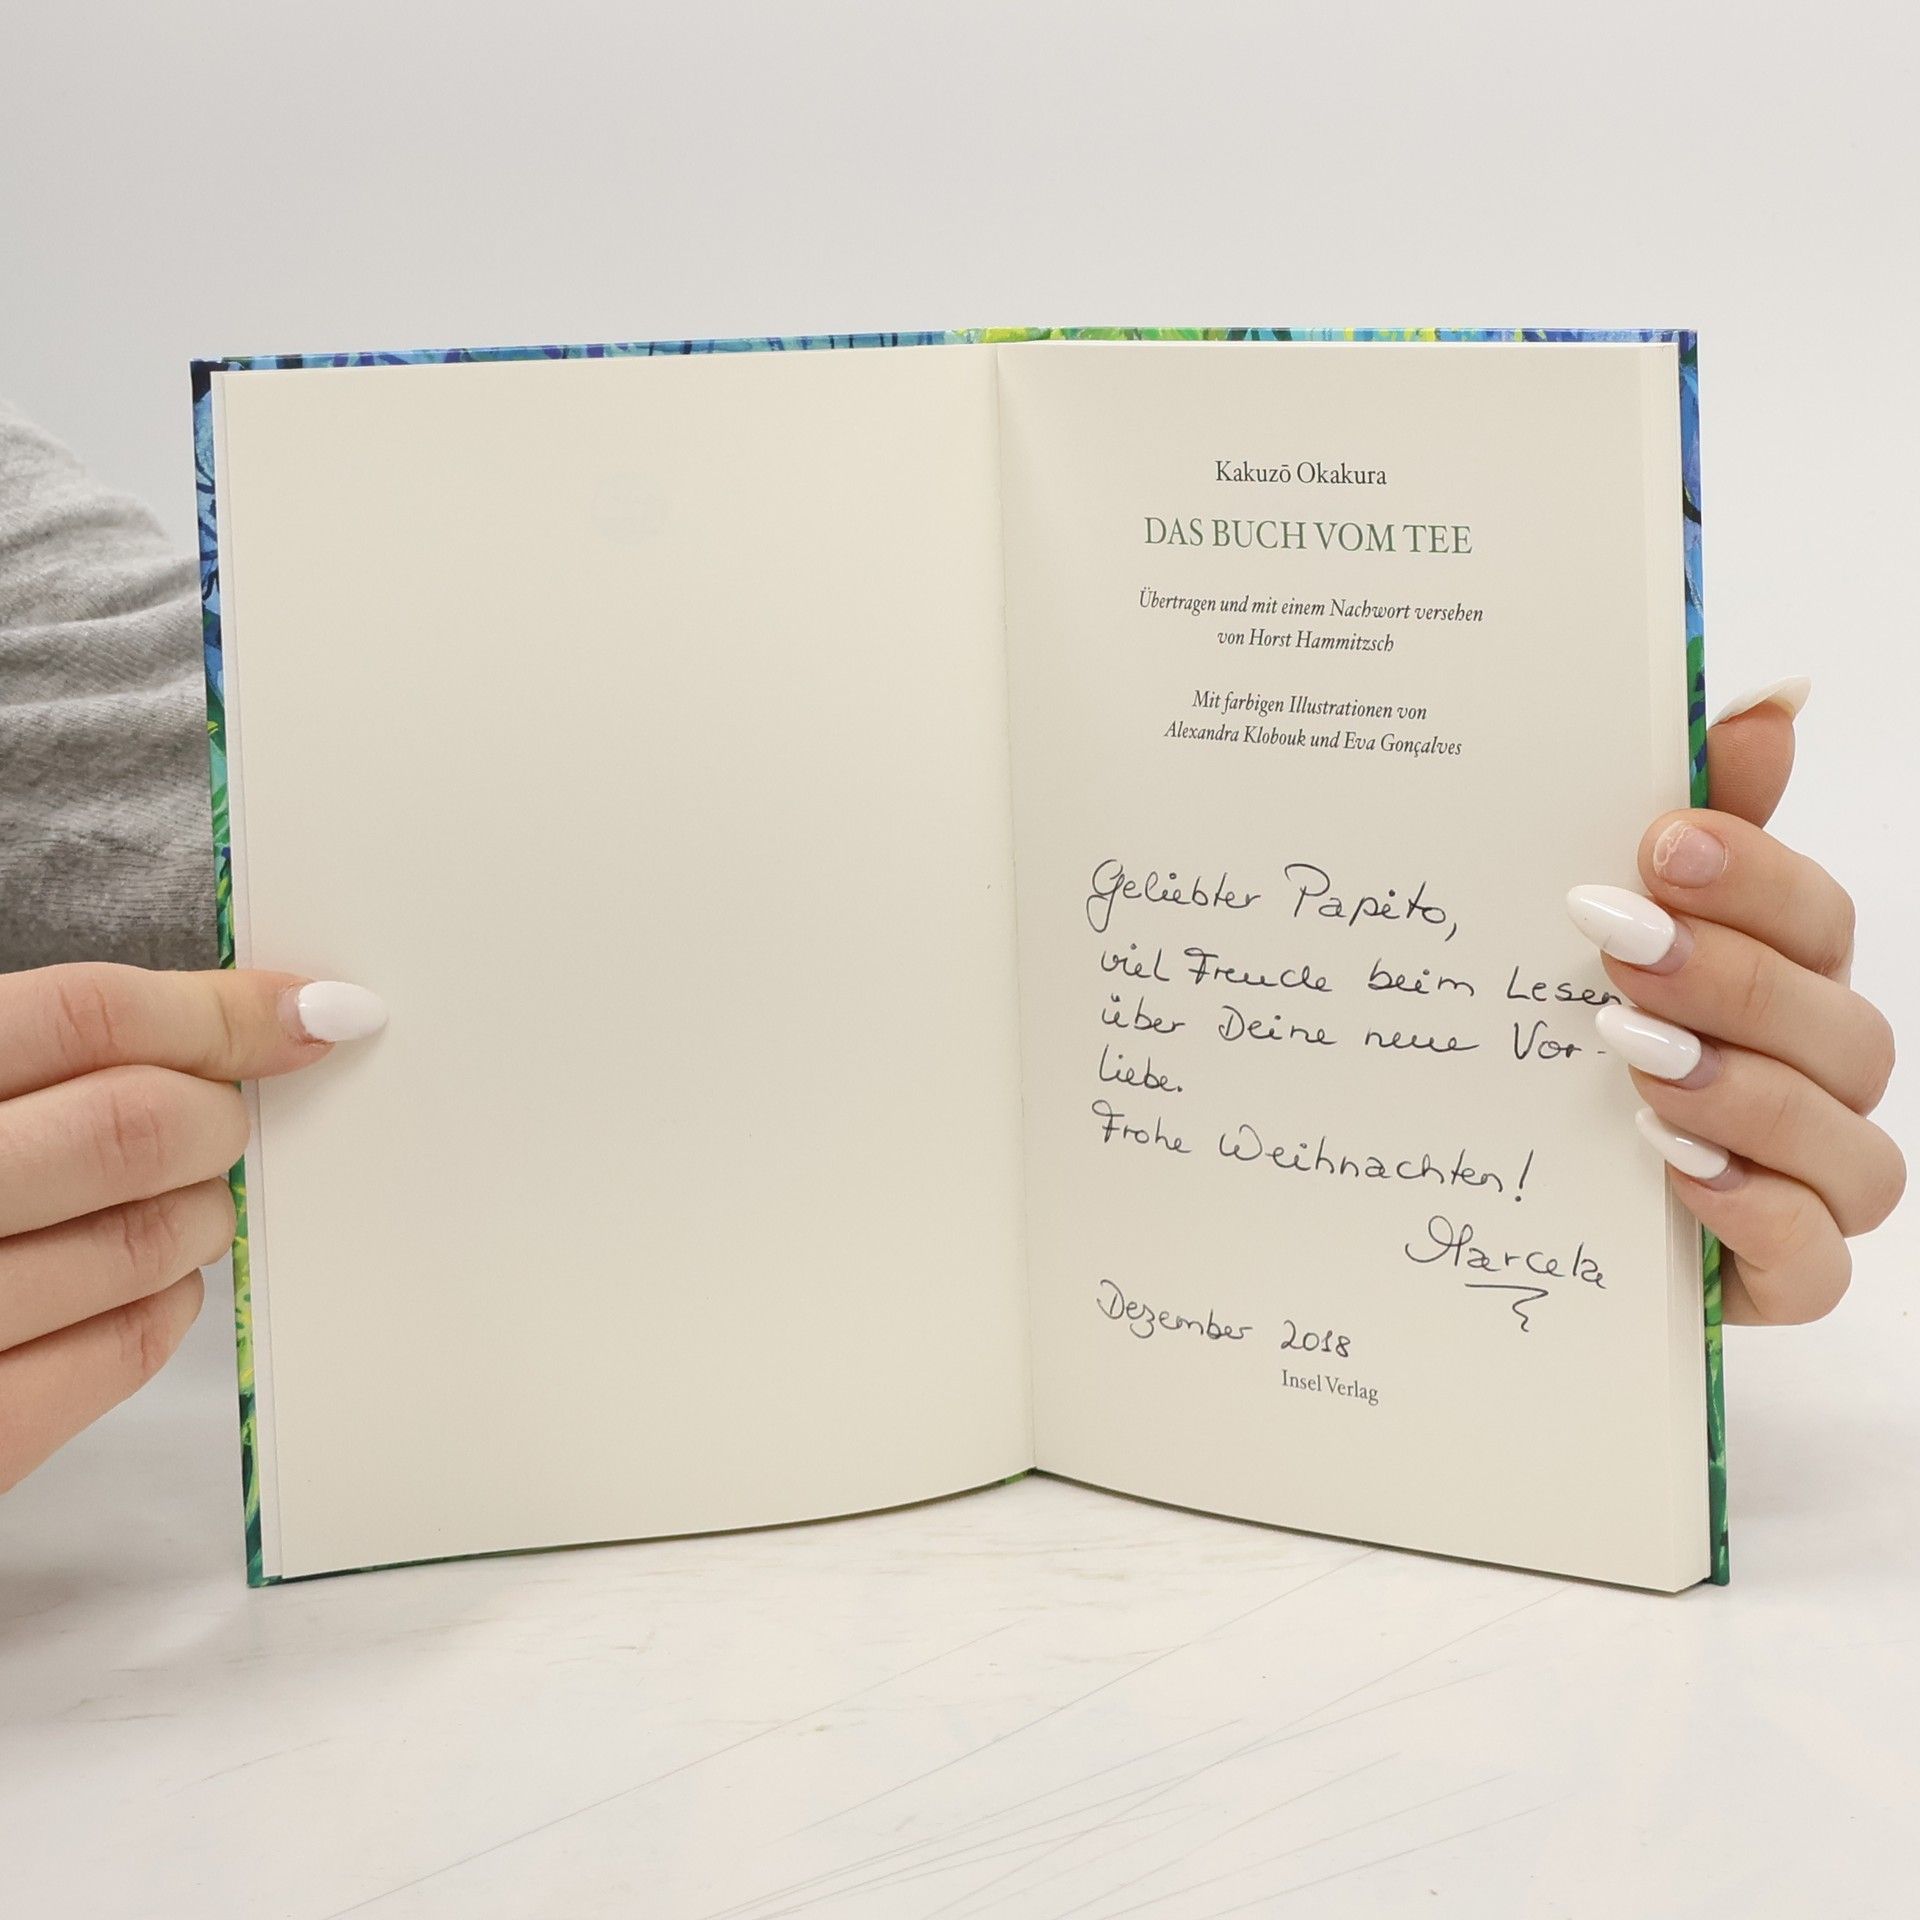 Kakuzō Okakura
DAS BUCH VOM TEE
Übertragen und mit einem Nachwort versehen
von Horst Hammitzsch
Mit farbigen Illustrationen von
Alexandra Klobouk und Eva Gonçalves
Geliebter Papito,
viel Freude beim Lesen
über Deine neue Vor-
liebe.
Frohe Weihnachten!
Marcela
Dezember 2018
Insel Verlag